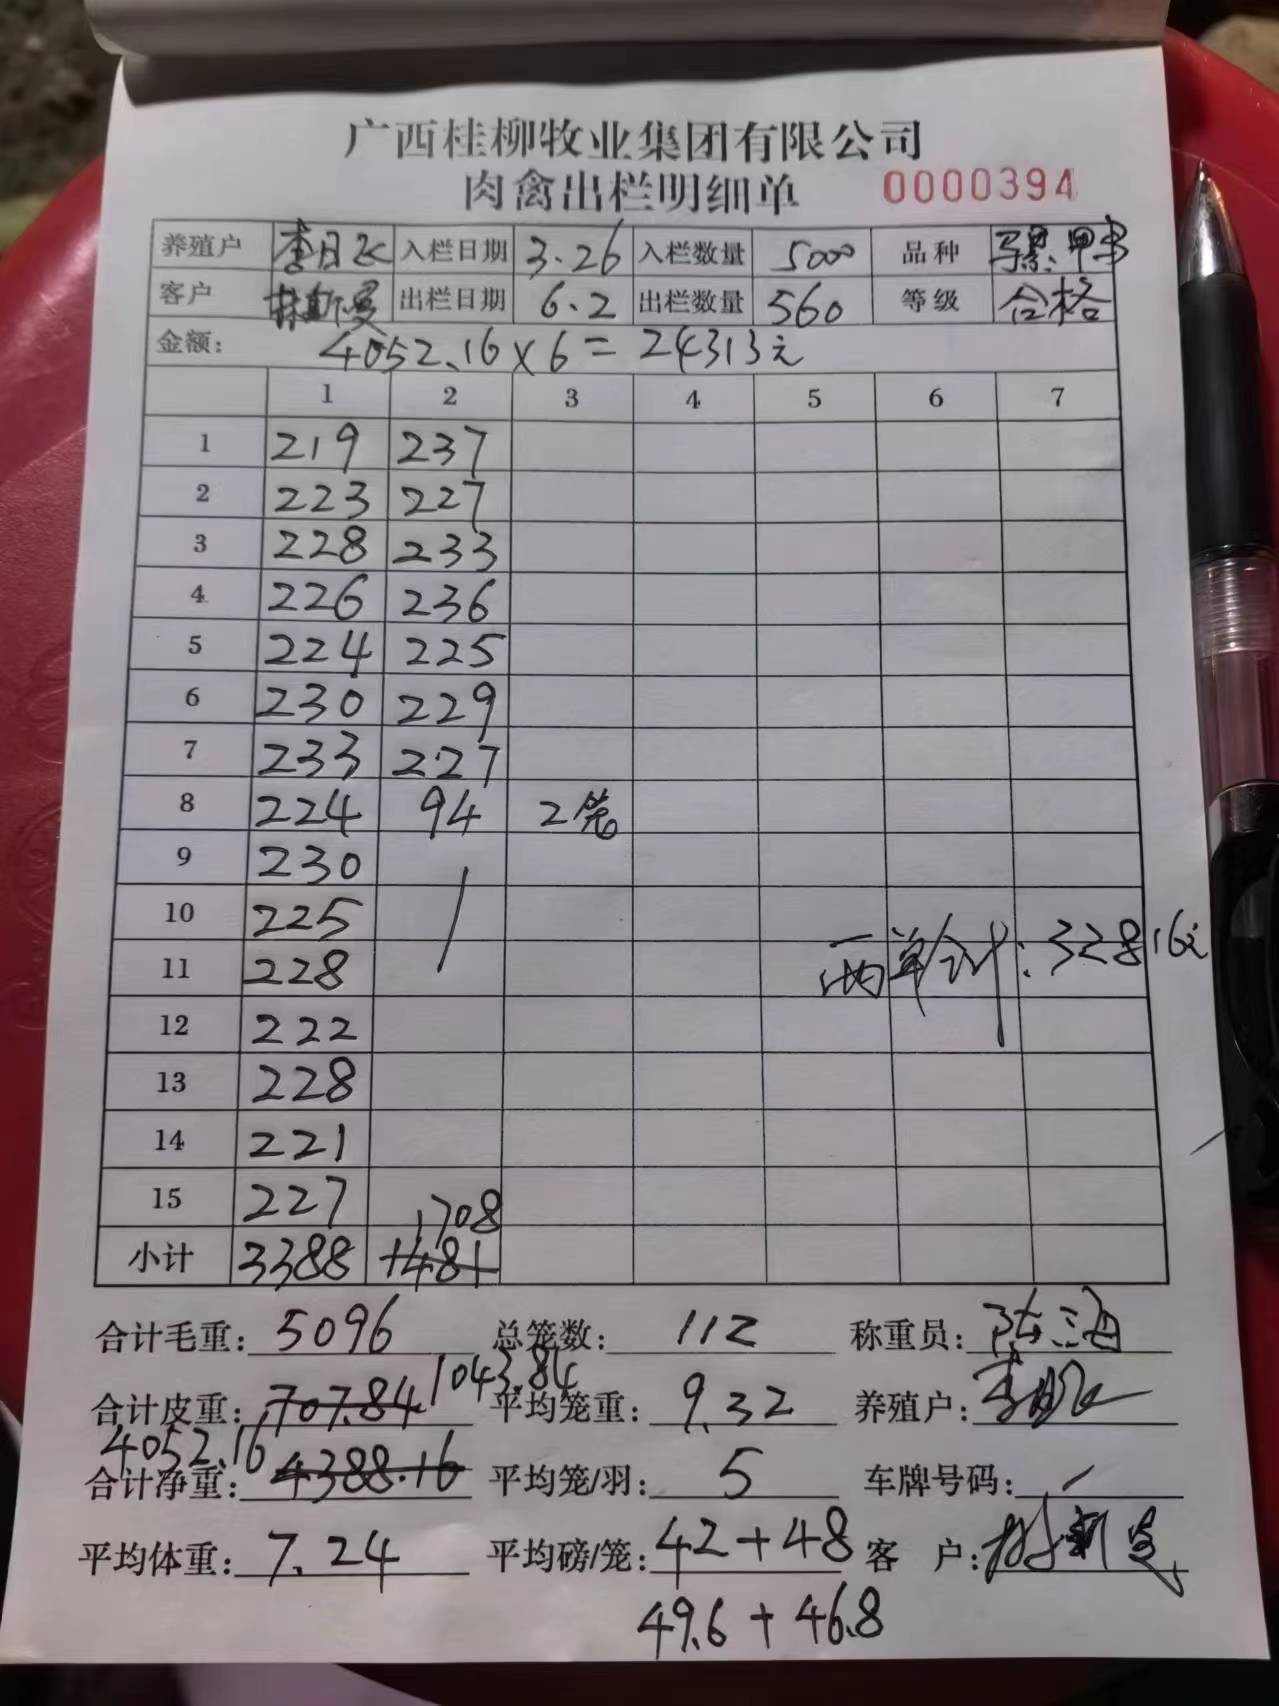 广西桂柳牧业集团有限公司
肉禽出栏明细单 0000394
养殖户 李日飞 入栏日期 3.26 入栏数量 5000 品种
客户 林斯曼 出栏日期 6.2 出栏数量 560 等级 合格
金额: 4052.16×6=24313元
1 2 3 4 5 6 7
1 219 237
2 223 227
3 228 233
4 226 236
5 224 225
6 230 229
7 233 227
8 224 94 2笼
9 230
10 225
11 228
两单合计:32816元
12 222
13 228
14 221
15 227
1708
小计 3388 1481
合计毛重: 5096 总笼数: 112 称重员: 陈海
合计皮重: 707.84 1043.84 平均笼重: 9.32 养殖户:
4052.16
合计净重: 4388.16 平均笼/羽: 5 车牌号码: /
平均体重: 7.24 平均磅/笼: 42+48 客 户:
49.6+46.8